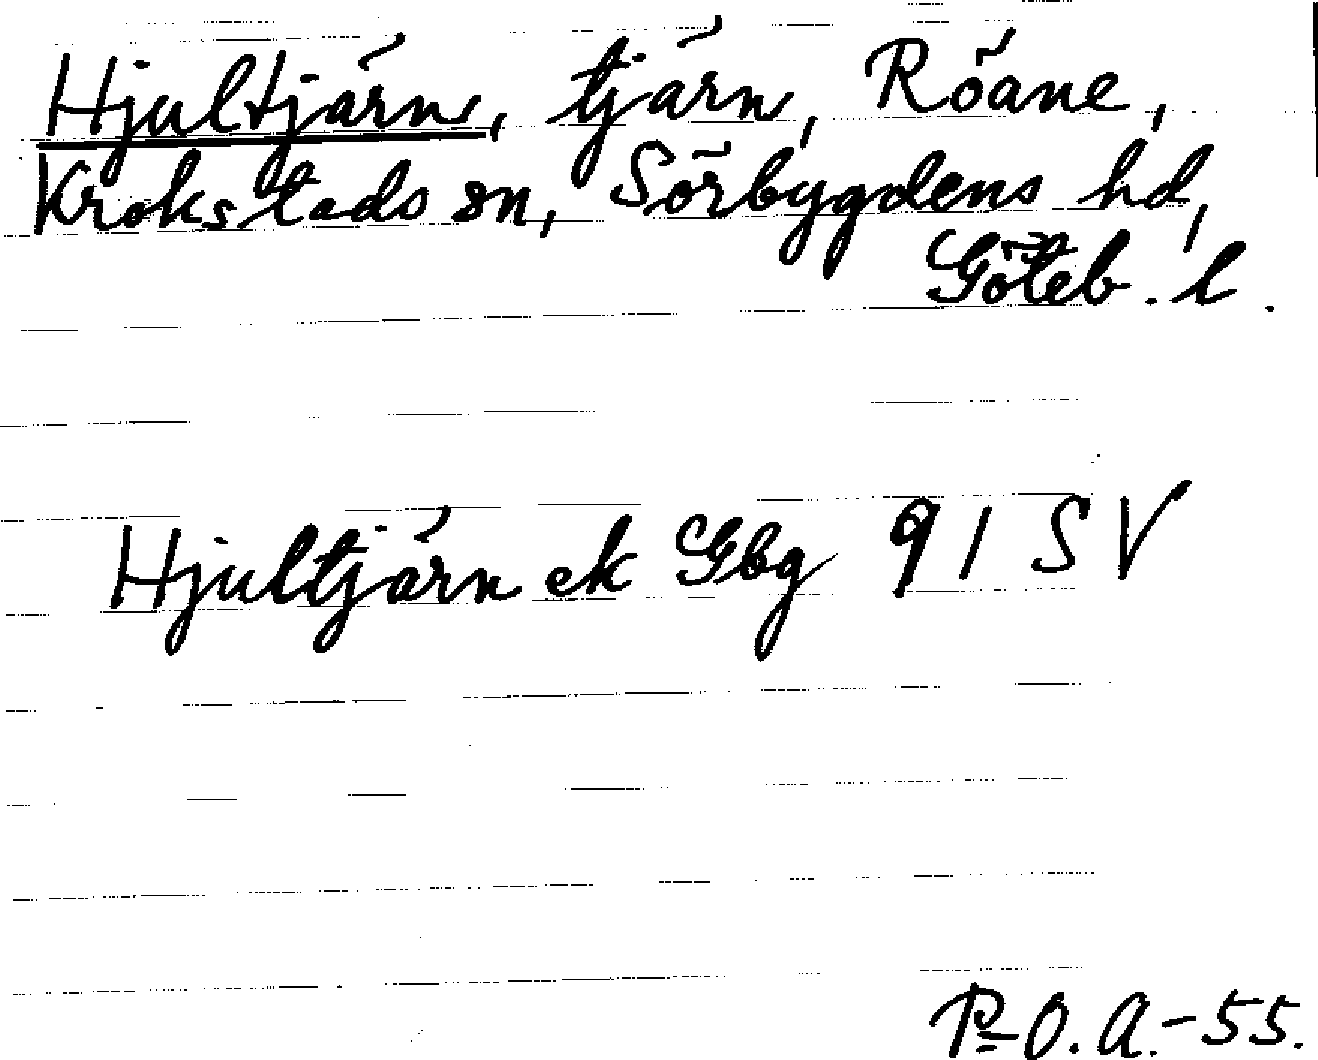 Hjultjärn, tjärn, Röane,
Krokstads sn, Sörbygdens hd,
Göteb. l.
Hjultjärn ek Gbg 91 SV
P.O.A.-55.